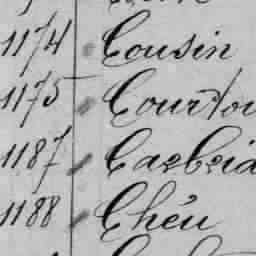 1174 Cousin
1175 Courtou
1187
1188 Chéu